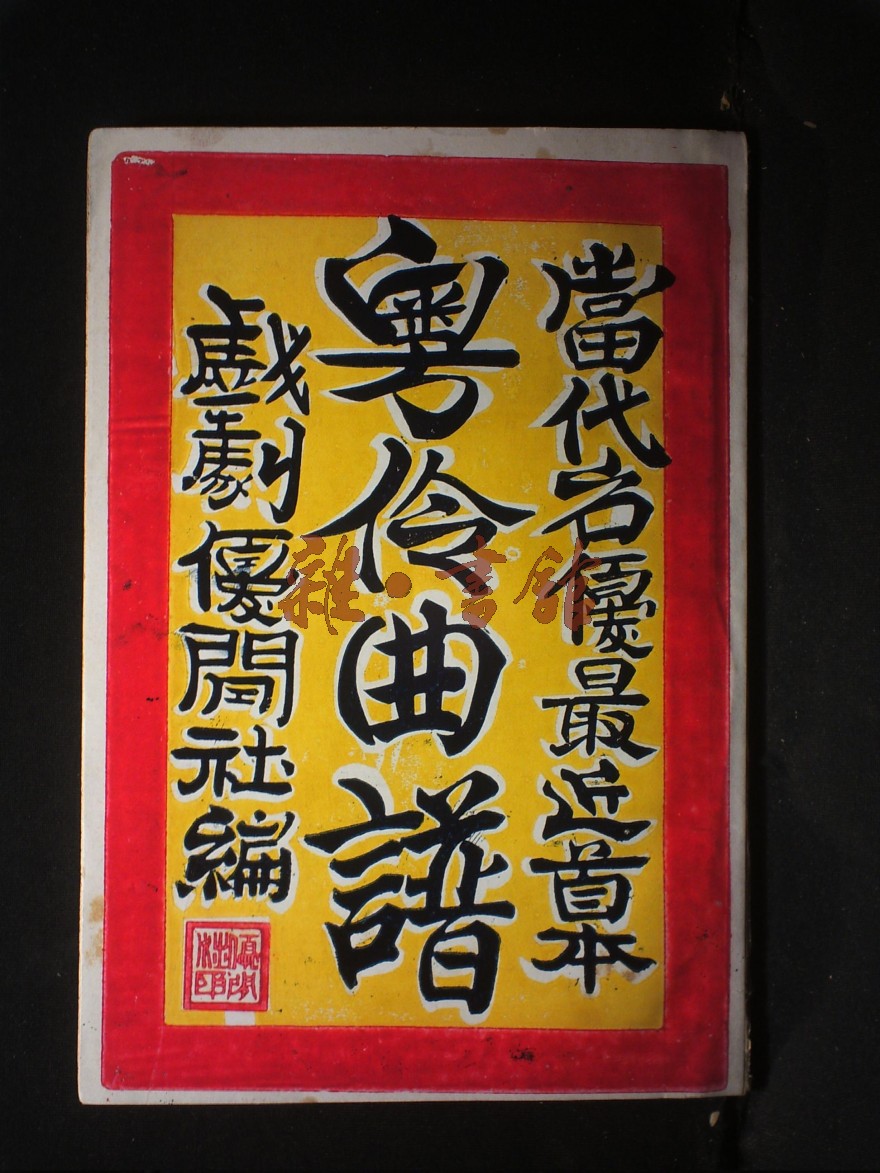 當代名優最近首本
粵伶曲譜
戲劇優閒社編
雜·書館